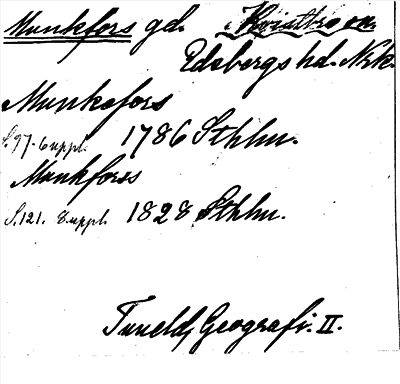 Munkfors gd. Kvistbro sn.
Edsbergs hd. Nrk.
Munkafors
S. 97. 6 uppl. 1786 Sthlm.
Munkforss
S. 121. 8 uppl. 1828 Sthlm.
Tuneld, Geografi. II.